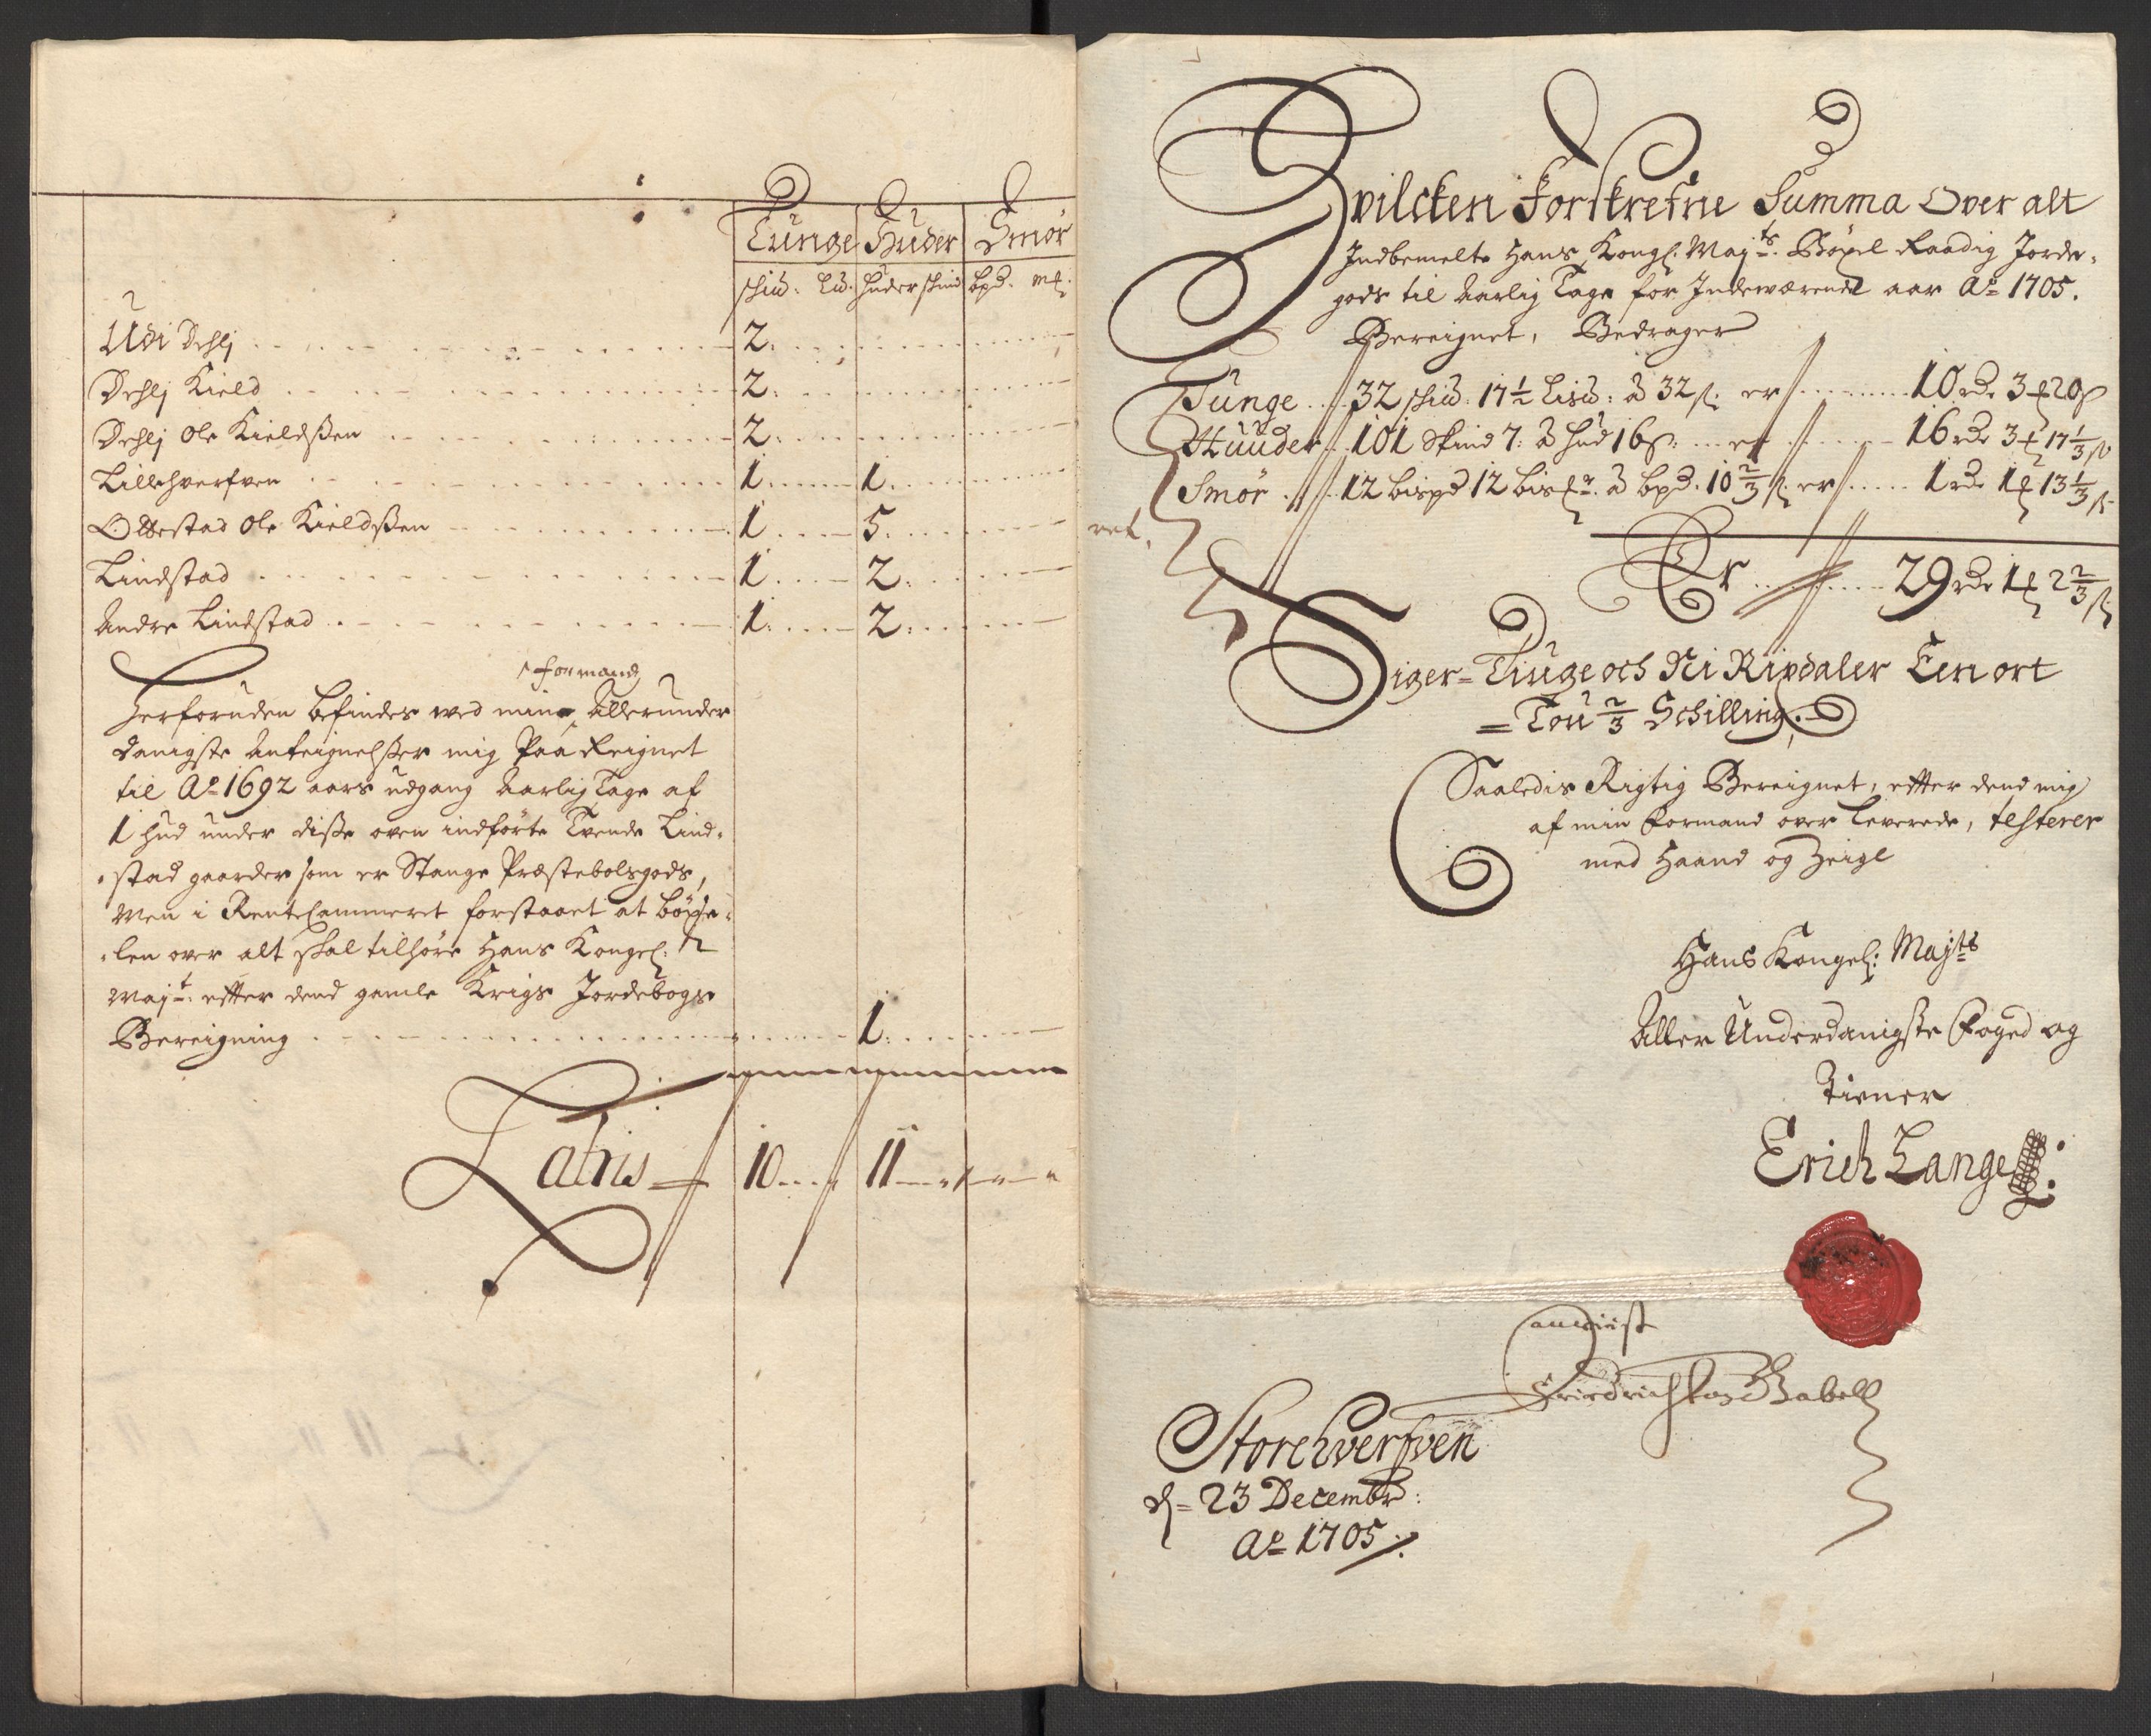 Tunge Huder Smør
schid: Ld. Huder skind bpd. mk:
Udi Dehlj 2.
Dehlj Kield 2.
Dehlj Ole Kieldßen 2.
Lillehverfven 1. 1.
Ottestad Ole Kieldßen 1 5.
Lindstad 1 2.
Andre Lindstad 1. 2.
formand
Herforuden befindes ved min Allerunder
danigste Anteignelßer mig Paa Reignet
til Ao 1692 aars udgang Aarlig Tage af
1 hud under diße oven indførte Tvende Lind-
-stad gaarder som er Stange Præstebolsgods,
Men i Rentecammeret forstaaet at böxe-
-len over alt skal tilhøre Hans Kongel:
Majt: effter dend gamle Krigs Jordebogs
Bereigning 1.
Latus 10 11
Hvilcken Forskrefne Summa Over alt
Indbemelte Hans Kongl. Majts. Böxel Raadig Jorde-
gods til Aarlig Tage for Indeværende aar Ao 1705.
Bereignet, Bedrager
Tunge 32 schid: 17 1/2 Lisd: à 32 ß: er 10 rdr 3 ₰ 20 ß
Huuder 101 Skind 7: à hud 16 ß: er 16 rdr 3 ₰ 17 1/3 ß
Smör 12 bispd 12 bismkr. à bpd. 10 2/3 ß er 1 rdr 1 ₰ 13 1/3 ß
Er 29 rdr 1 ₰ 2 2/3 ß
Siger = Tiuge och Ni Rixdaler Een ort
= Tou 2/3 Schilling.
Saaledis Rigtig Bereignet, effter dend mig
af min Formand over Leverede, testerer
med Haand og Zeigl
Hans Kongel: Majts
Aller Underdanigste Foged og
Tiener
Erich Lange
Friedrich Gabell
Storehverfven
d= 23 Decembr:
Ao 1705.